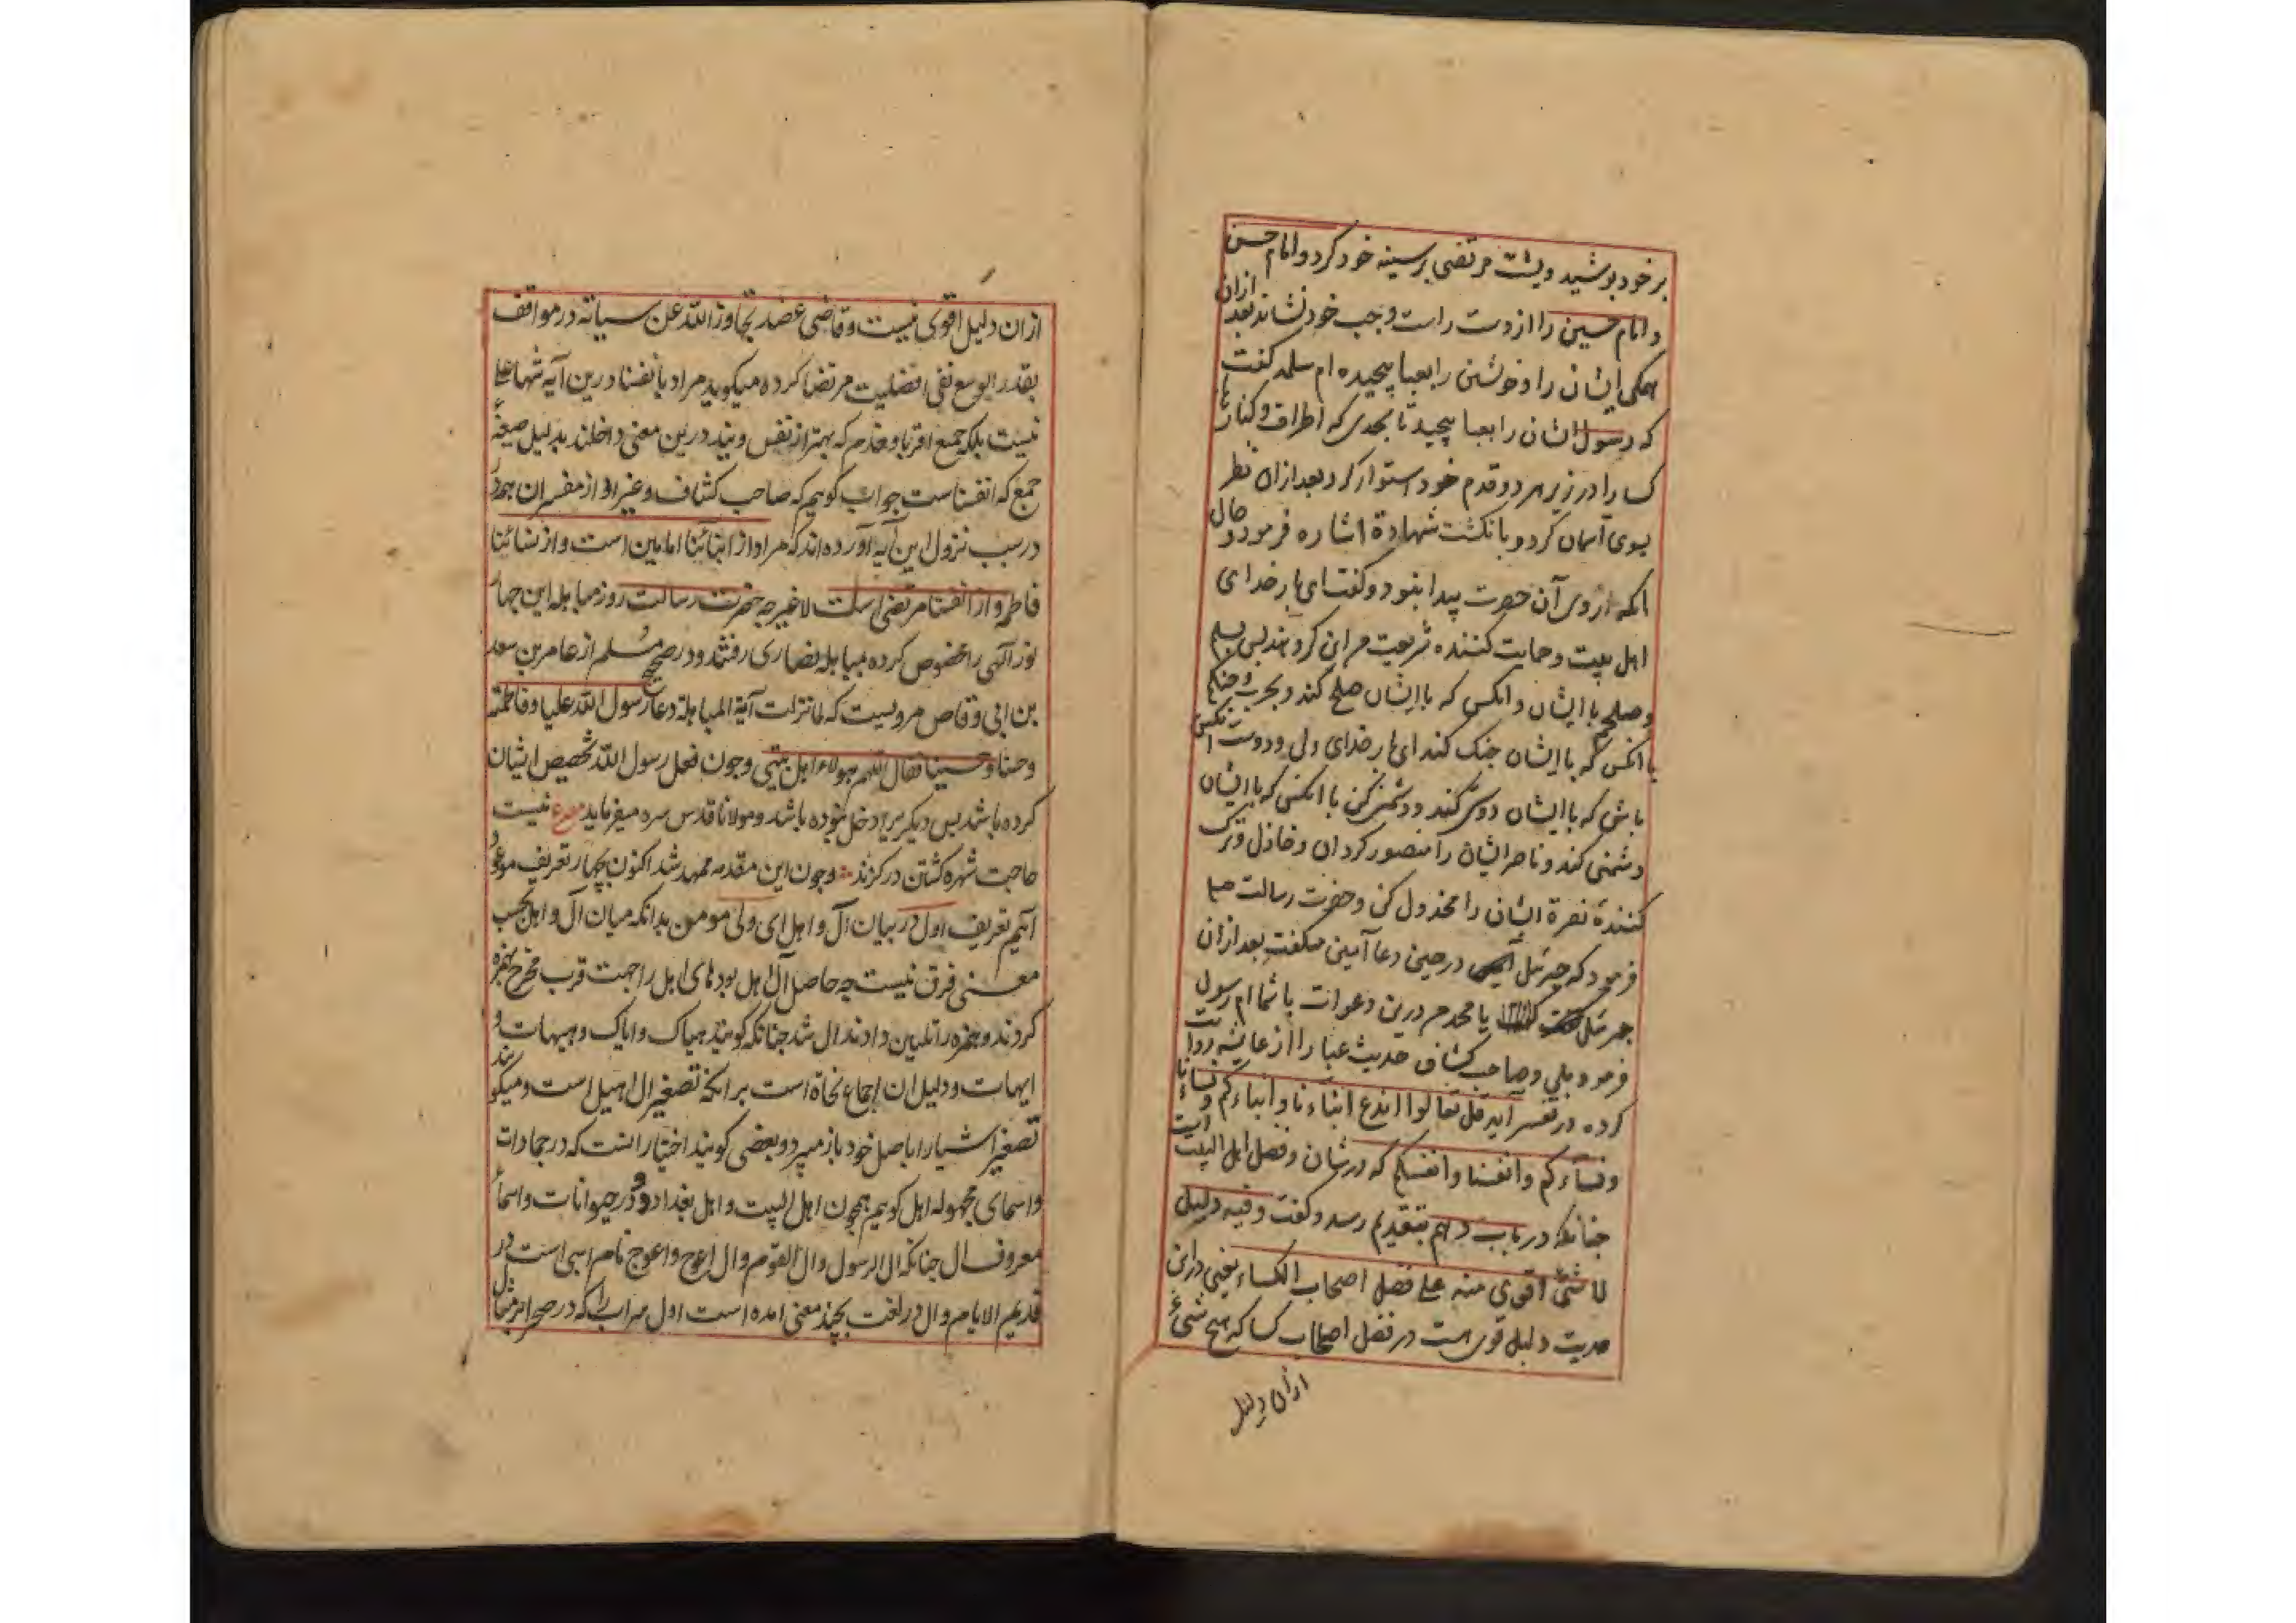 بر خود پوشید و پشت مرتضی بر سینه خود کرد و امام حسن
و امام حسین را از دست راست و چپ خود نشاند بعد ازان
همکی ایشان را و خویشتن را بعبا پیچیده ام سلمه کفت
که رسول ایشان را بعبا پیچید تا بحدی که اطراف و کنارها
کسا را در زیر هر دو قدم خود استوار کرد بعد ازان نظر
بسوی آسمان کرد و بانکشت شهادة اشاره فرمود و حال
آنکه از وی آن حضرت پیدا بنمود و کفت ای بار خدای
اهل بیت و حمایت کننده شریعت من این کروهند پس بسلم
و صلحم با ایشان و انکس که با ایشان صلح کند و بحرب و جنکم
با انکس که با ایشان جنک کند ای بار خدای ولی و دوست انکس
باش که با ایشان دوستی کند و دشمنی کن با انکس که با ایشان
دشمنی کند و ناصر ایشان را منصور کردان و خاذل و ترک
کنندهٔ نصرة ایشان را مخذول کن و حضرت رسالت
فرمود که جبرئیل در حین دعا آمین میکفت بعد ازان
جبرئیل کفت یا محمد من درین دعوات با شما ام رسول
فرمود بلی و صاحب کشاف حدیث عبا را از عایشه روایت
کرده در تفسیر آیه قل تعالوا اندع ابناءنا و ابناءکم و نساءنا
و نساءکم و انفسنا و انفسکم که در شان و فضل اهل البیت است
چنانکه در باب دهم بتقدیم رسد و کفت و فیه دلیل
لا شئ اقوی منه علی فضل اصحاب الکساء یعنی درین
حدیث دلیل قوی است در فضل اصحاب کسا که هیچ شیء
ازان دلیل
ازان دلیل اقوی نیست و قاضی عضد تجاوز الله عن سیاته در مواقف
بقدر الوسع نفی افضلیت مرتضا کرده میکوید مراد بانفسنا درین آیه تنها علی
نیست بلکه جمیع اقربا و خدم که بهتر از نفس ویند درین معنی داخلند بدلیل صیغهٔ
جمع که انفسنا است جواب کویم که صاحب کشاف و غیر او از مفسران همه
در سبب نزول این آیه آورده اند که مراد از ابنائنا امامین است و از نسائنا
فاطمه و از انفسنا مرتضی است لا غیر چه حضرت رسالت روز مباهله این چهار
نور آلهی را مخصوص کرده بمباهله نصاری رفتند و در صحیح مسلم از عامر بن سعد
بن ابی وقاص مرویست که لما نزلت آیة المباهلة دعا رسول الله علیا و فاطمة
و حسنا و حسینا فقال اللهم هولاء اهل بیتی و چون فعل رسول الله تخصیص ایشان
کرده باشد پس دیکریرا دخل نبوده باشد و مولانا قدس سره میفرماید مصرع نیست
حاجت شهره کشتن در کزند و چون این مقدمه ممهد شد اکنون بچهار تعریف موعود
آئیم تعریف اول در بیان آل و اهل ای ولی مومن بدانکه میان آل و اهل بحسب
معنی فرق نیست چه حاصل آل اهل بود های اهل را جهت قرب مخرج بهمزه
کردند و همزه را تلیین دادند ال شد چنانکه کویند هیاک و ایاک و هیهات و
ایهات و دلیل ان اجماع نحاة است برانکه تصغیر ال اهیل است و میکویند
تصغیر اشیا را باصل خود باز میبرد و بعضی کویند اختیار انست که در جمادات
و اسمای مجهوله اهل کویم همچون اهل البیت و اهل بغداد و در حیوانات و اسماء
معروف ال چنانکه ال الرسول و ال القوم و ال اعوج و اعوج نام اسبی است در
قدیم الایام و ال در لغت بچند معنی امده است اول سراب را که در صحرا بر مثال